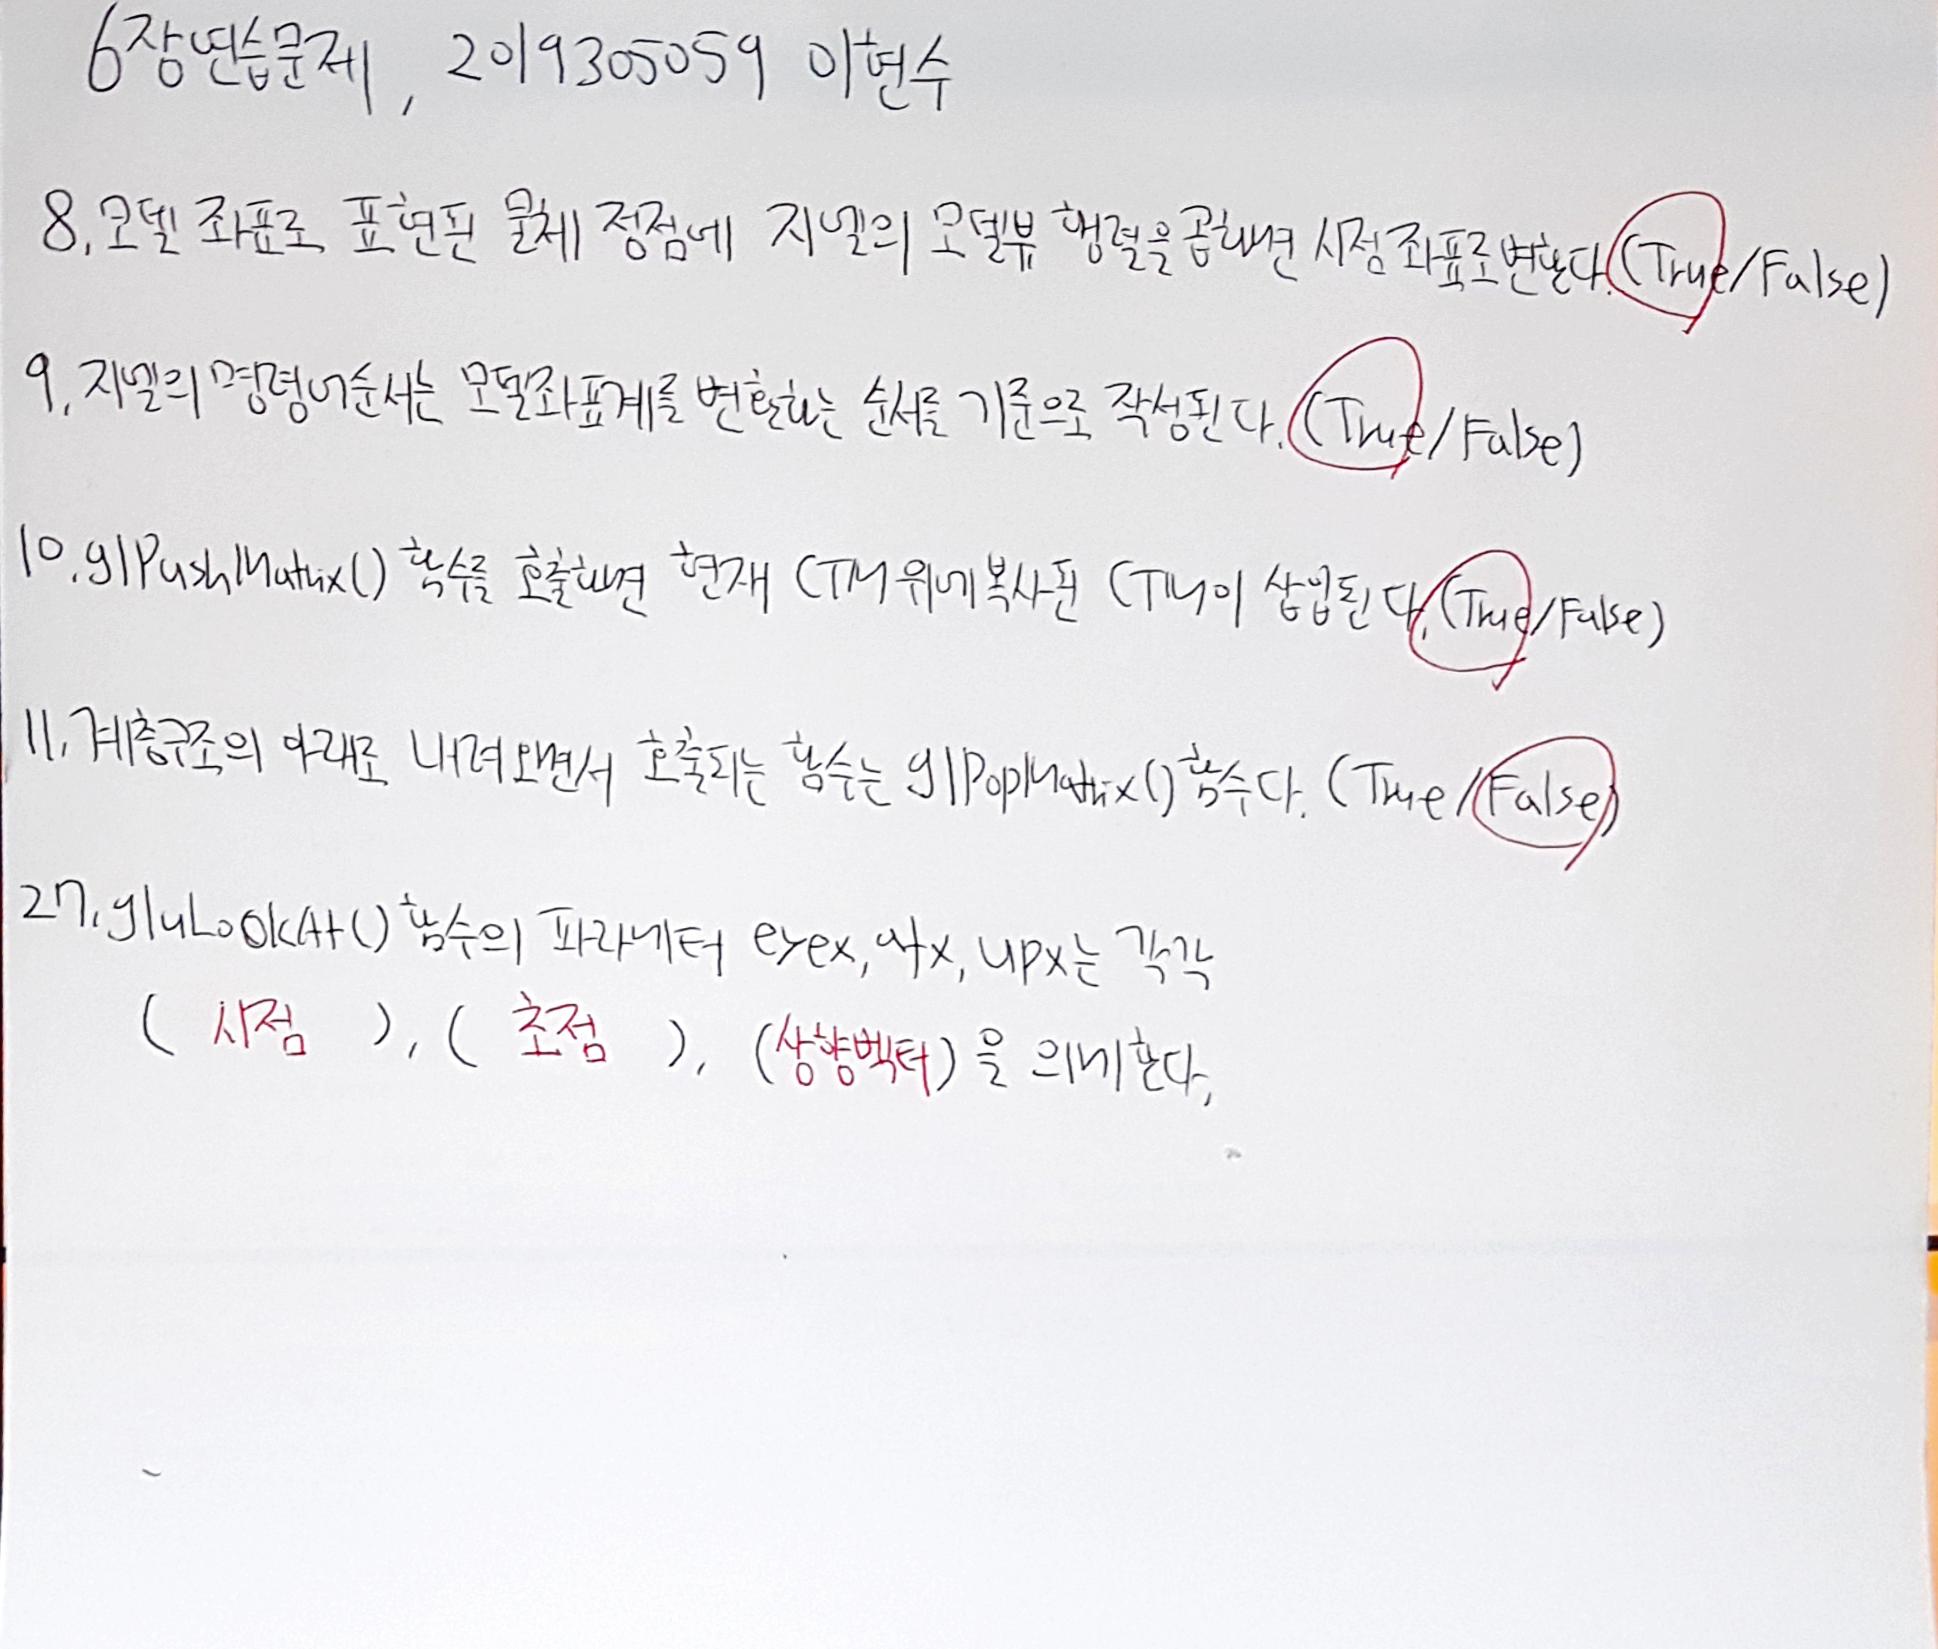 6장연습문제, 2019305059 이현수
8. 모델 좌표로 표현된 물체 정점에 지엘의 모델뷰 행렬을 곱하면 시점 좌표로 변한다. (True/False)
9. 지엘의 명령어 순서는 모델좌표계를 변환하는 순서를 기준으로 작성된다. (True/False)
10. glPushMatrix() 함수를 호출하면 현재 CTM 위에 복사된 CTM이 삽입된다. (True/False)
11. 계층구조의 아래로 내려오면서 호출되는 함수는 glPopMatrix() 함수다. (True/False)
27. gluLookAt() 함수의 파라메터 eyex, atx, upx는 각각
( 시점 ), ( 초점 ), (상향벡터)을 의미한다,